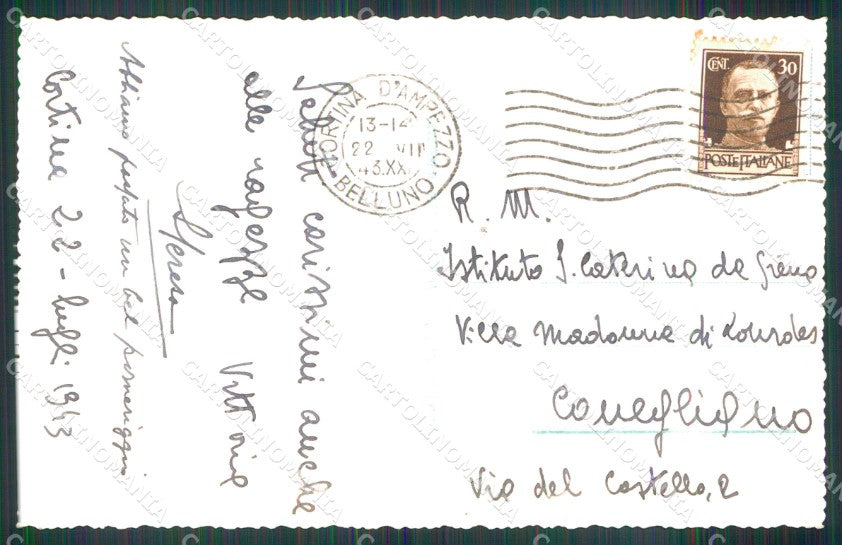 Cortina 22 - luglio 1943
Abbiamo passato un bel pomeriggio
Saluti carissimi anche
alle ragazze Vittoria
Teresa
CORTINA D'AMPEZZO
13-14
22 VII
43.XXI
BELLUNO
CENT. 30
POSTE ITALIANE
R. M.
Istituto S. Caterina da Siena
Villa Madonna di Lourdes
Conegliano
Via del Castello, 2
CARTOLINOMANIA